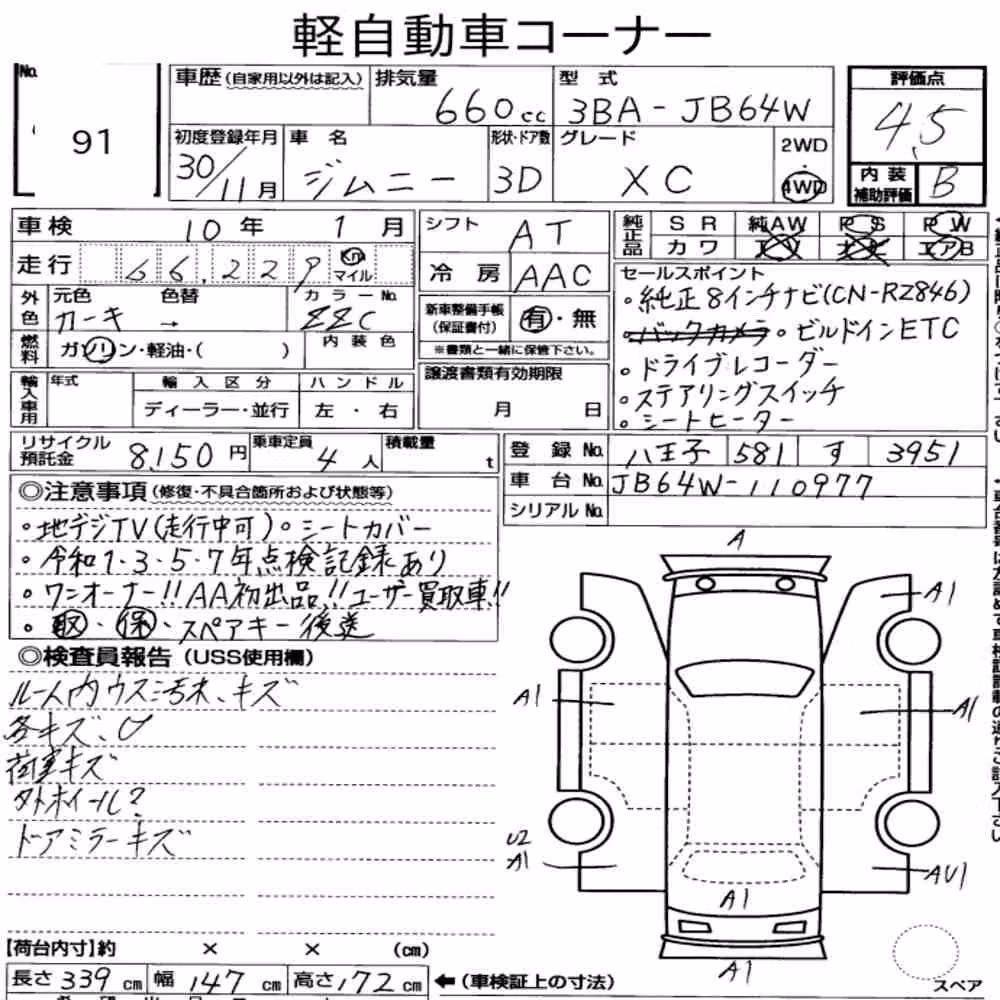 軽自動車コーナー
No. 91
車歴 (自家用以外は記入) 排気量 660cc 型式 3BA-JB64W
初度登録年月 30/11月 車名 ジムニー 形状・ドア数 3D グレード XC 2WD・4WD
評価点 4.5
内装補助評価 B
車検 10年 1月 シフト AT
走行 66,229 km マイル 冷房 AAC
純正品 SR 純AW PS PW
カワ TV ナビ エアB
外色 元色 カーキ 色替 → カラーNo. ZZC
燃料 ガソリン・軽油・( ) 内装色
新車整備手帳(保証書付) 有・無
※書類と一緒に保管下さい。
輸入車用 年式 輸入区分 ハンドル
ディーラー・並行 左・右
譲渡書類有効期限
月 日
セールスポイント
・純正8インチナビ(CN-RZ846)
バックカメラ・ビルドインETC
・ドライブレコーダー
・ステアリングスイッチ
・シートヒーター
リサイクル預託金 8,150円 乗車定員 4人 積載量 t
登録No. 八王子 581 す 3951
車台No. JB64W-110977
シリアルNo.
◎注意事項 (修復・不具合箇所および状態等)
・地デジTV(走行中可)・シートカバー
・令和1・3・5・7年点検記録あり
・ワンオーナー!!AA初出品!!ユーザー買取車!!
・取・保・スペアキー後送
◎検査員報告 (USS使用欄)
ルーム内ウスミ汚れ、キズ
各キズ、U
荷室キズ
ドアミラーキズ
A
A1
A1
A1
A1
U2
A1
AU1
A1
A1
スペア
【荷台内寸】約 × × (cm)
長さ 339 cm 幅 147 cm 高さ 172 cm ←(車検証上の寸法)